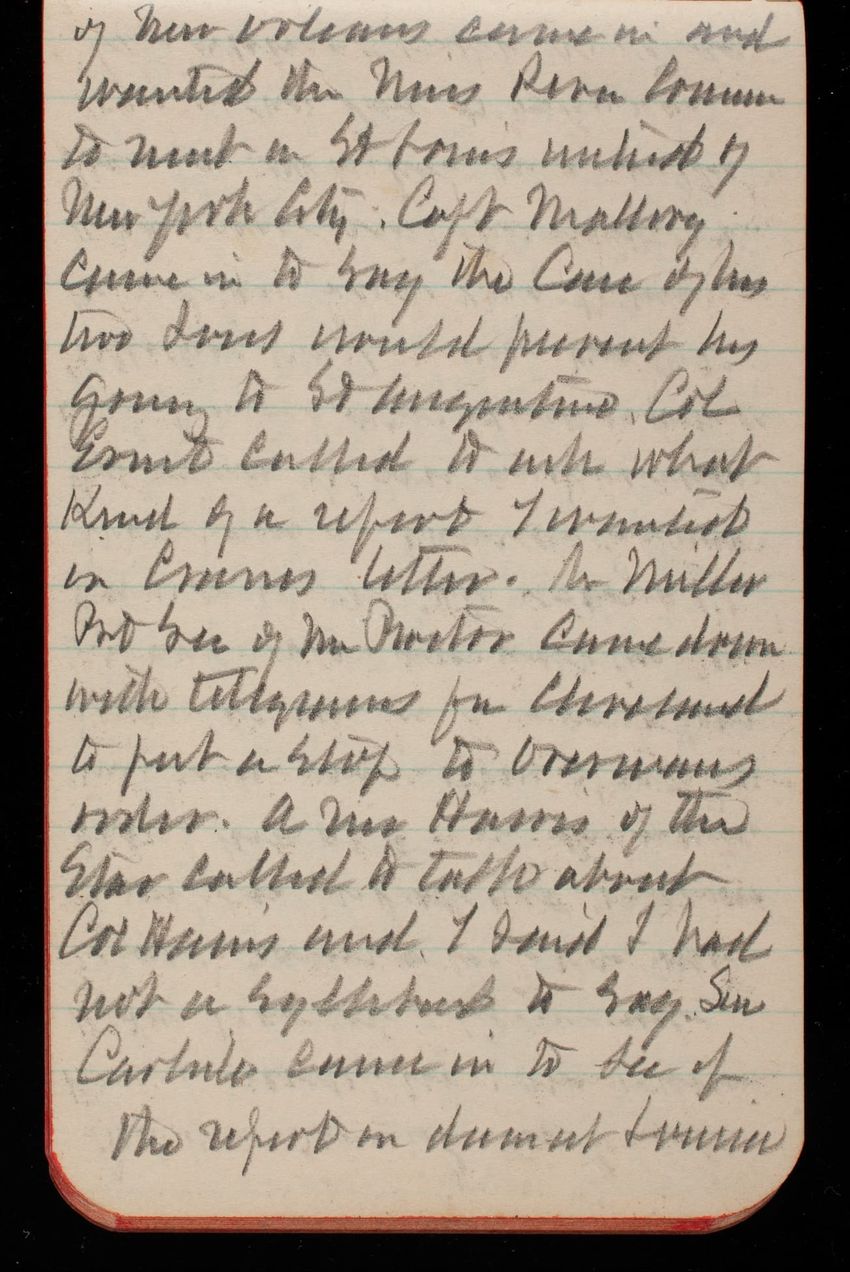 of New Orleans came in and
wanted the Miss River Comm
to meet in St Louis instead of
New York City. Capt Mallery
came in to say the Care of his
two Sons would prevent his
going to St Augustine. Col
Ernst called to ask what
Kind of a report I wanted
in letter. Mr Miller
Prvt Sec of Mr Proctor came down
with telegrams for Cleveland
to put a stop to Overmans
order. A Mr Harris of the
Star called to talk about
Col Hains and I said I had
not a Syllable to Say. Sen
Carlisle came in to see if
the report on dam at Louisa